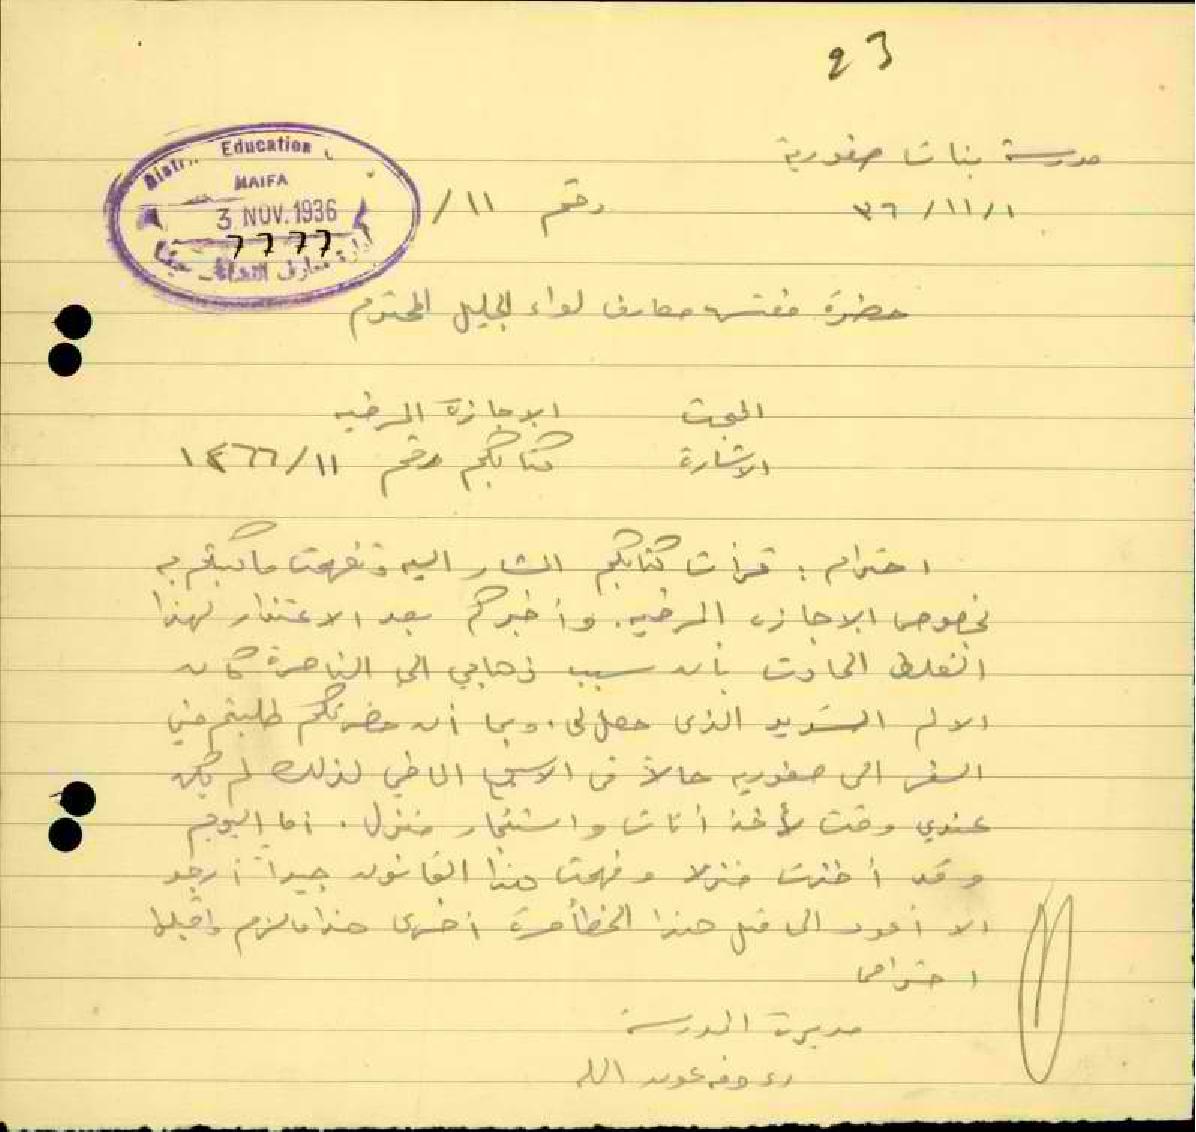 23
مدرسة بنات صفورية
٣٦/١١/١
رقم ١١/
Education
HAIFA
3 NOV. 1936
7777
حضرة مفتش معارف لواء الجليل المحترم
البحث الاجازة المرضيه
الاشارة كتابكم رقم ١١/١٤٦٦
احترام : قرأت كتابكم المشار اليه وتفهمت ما كتبتم به
بخصوص الاجازه المرضيه. وأخبركم بعد الاعتذار لهذا
الغلط الحادث بأن سبب ذهابي الى الناصرة كان
الالم الشديد الذى حصل لى. وبما أن حضرتكم طلبتم مني
السفر الى صفوريه حالاً فى الاسبوع الماضي لذلك لم يكن
عندي وقت لأخذ أثاث واستئجار منزل. أما اليوم
وقد أخذت منزلا وفهمت هذا القانون جيداً أرجو
الا أعود الى مثل هذا الخطأ مرة أخرى هذا ما لزم واقبلوا
احترامى
مديرة المدرسة
عون الله